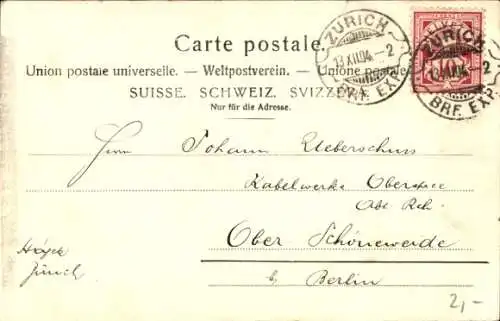 Carte postale.
Union postale universelle. — Weltpostverein. — Unione postale
SUISSE. SCHWEIZ. SVIZZERA.
Nur für die Adresse.
ZÜRICH
13.XII.04.-2
BRF. EXP.
ZÜRICH
BRF. EXP.
10
Herrn Johann Ueberschuss
Kabelwerke Oberspree
Abt.
Ober Schöneweide
b/ Berlin
Zürich
2,-